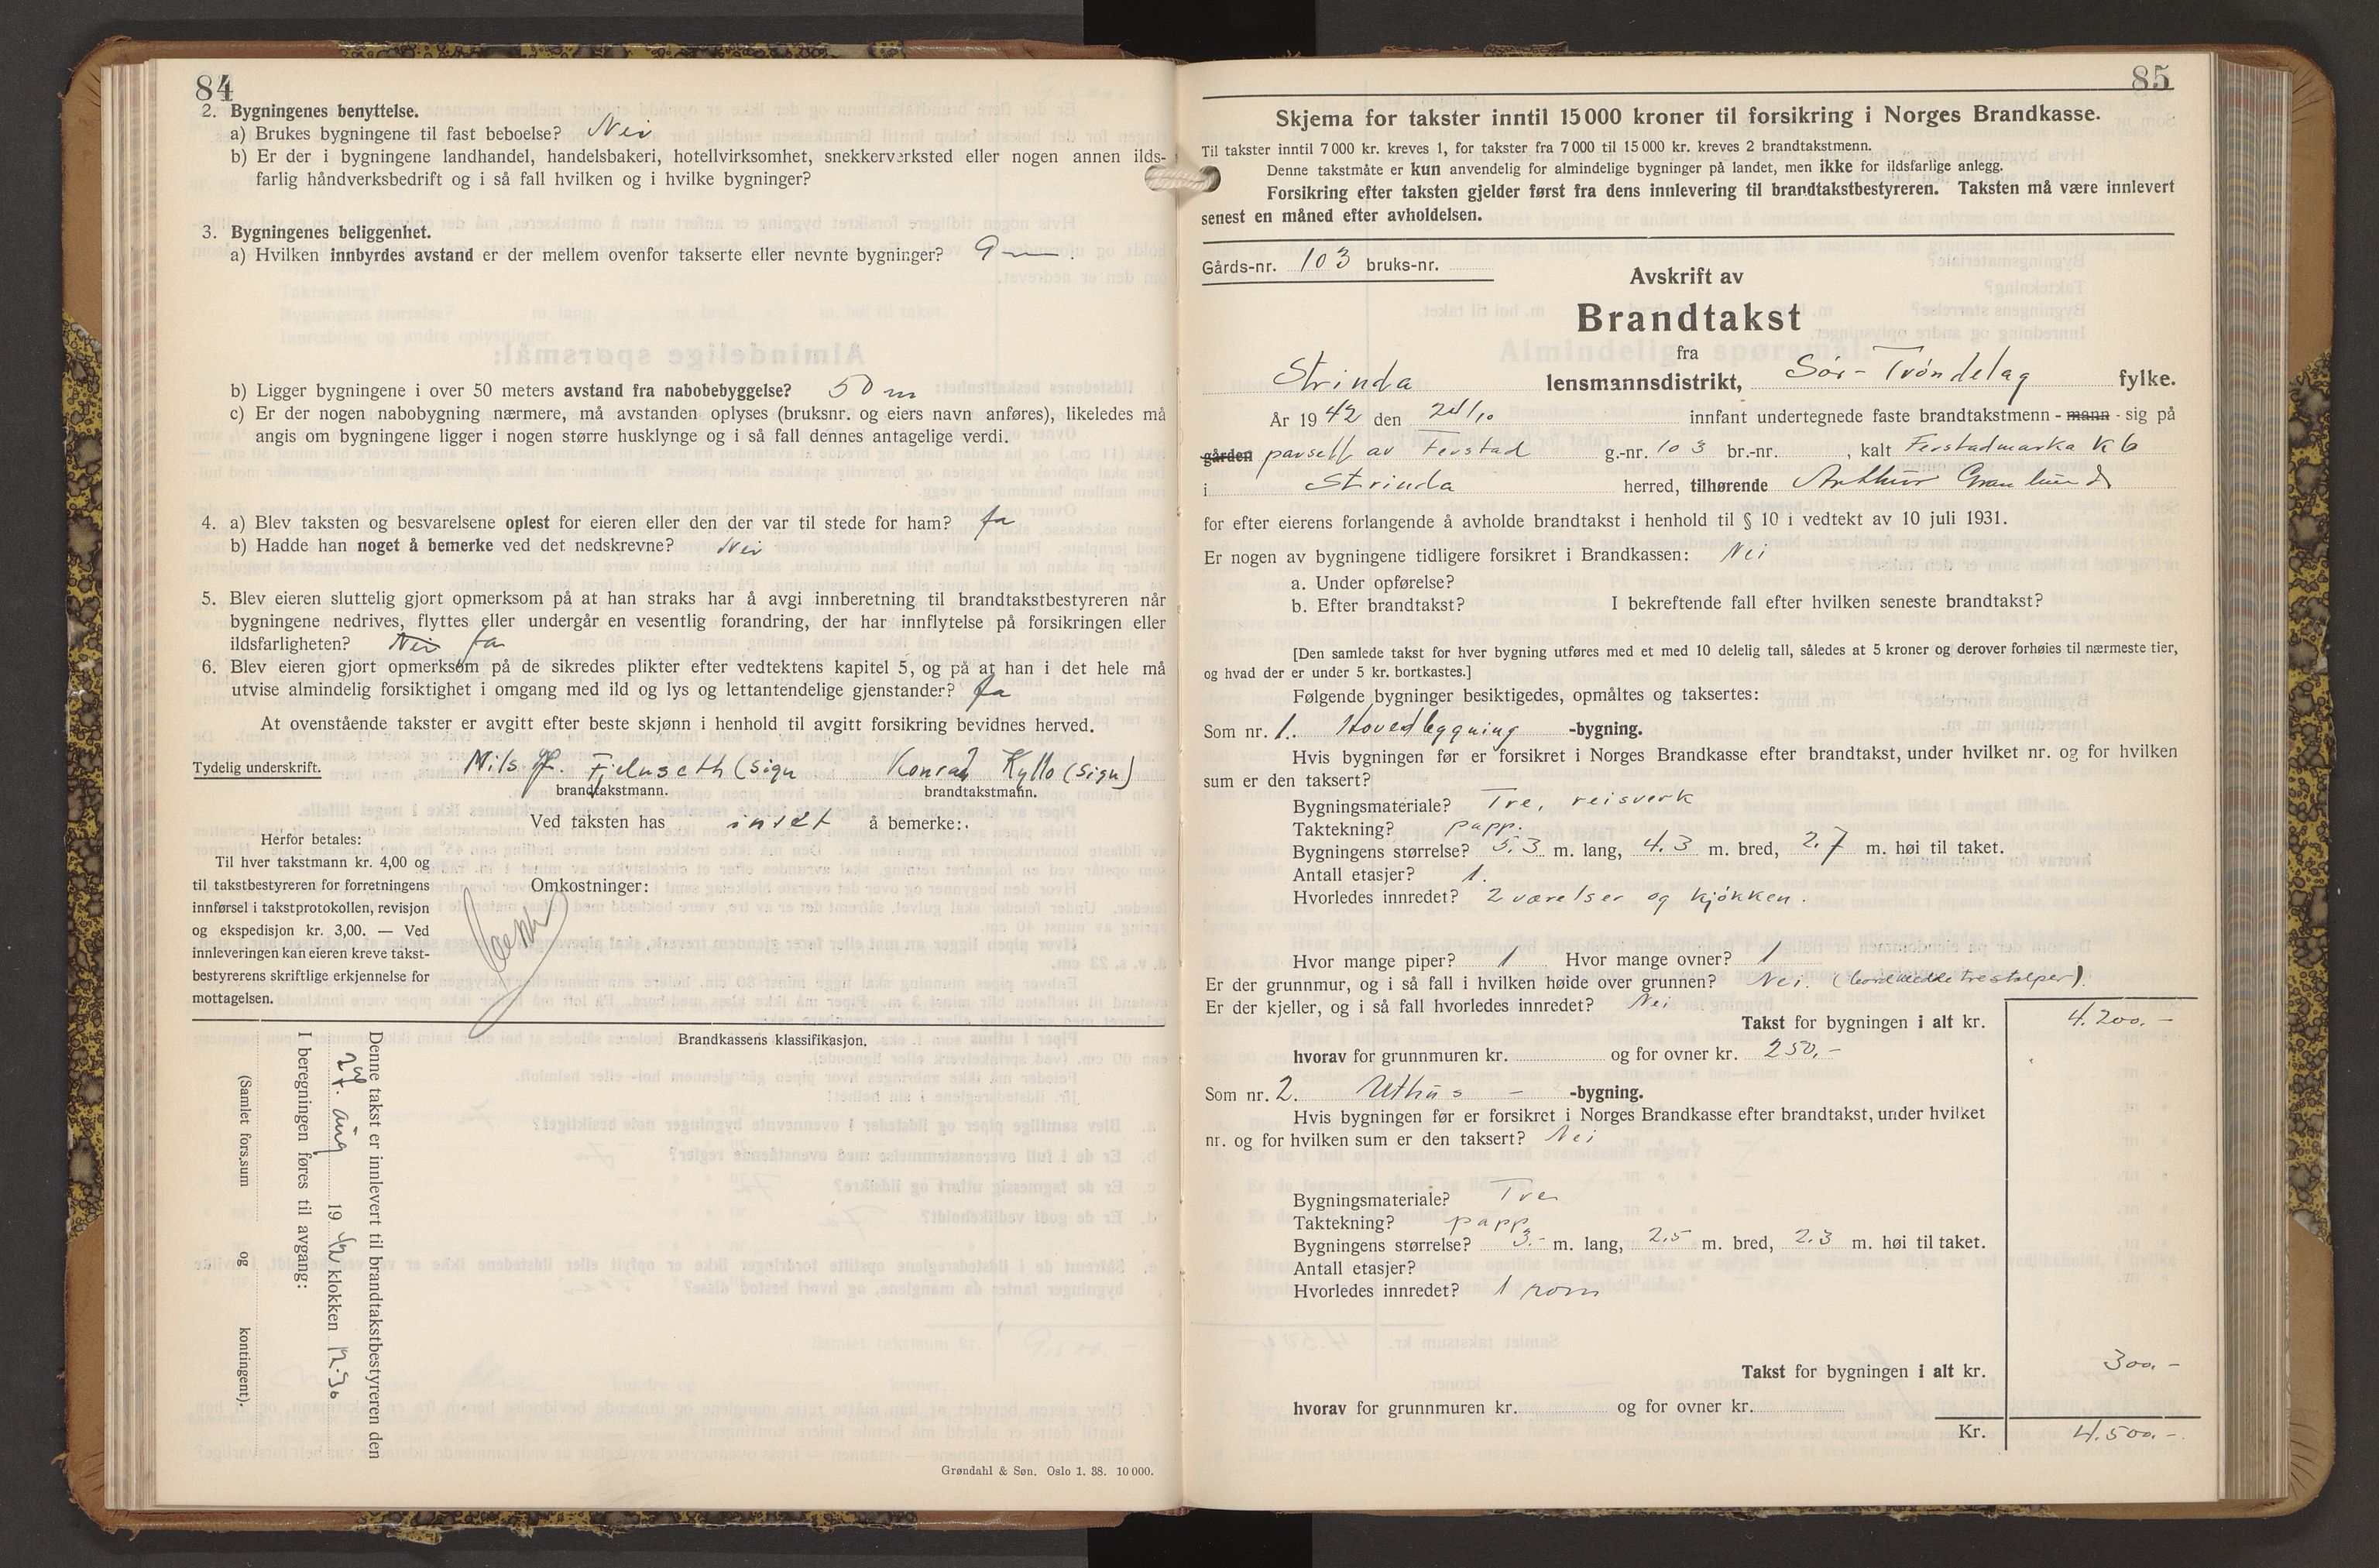 84
2. Bygningenes benyttelse.
a) Brukes bygningene til fast beboelse? Nei
b) Er der i bygningene landhandel, handelsbakeri, hotellvirksomhet, snekkerverksted eller nogen annen ilds-
farlig håndverksbedrift og i så fall hvilken og i hvilke bygninger?
3. Bygningenes beliggenhet.
a) Hvilken innbyrdes avstand er der mellem ovenfor takserte eller nevnte bygninger? 9 m.
b) Ligger bygningene i over 50 meters avstand fra nabobebyggelse? 50 m
c) Er der nogen nabobygning nærmere, må avstanden oplyses (bruksnr. og eiers navn anføres), likeledes må
angis om bygningene ligger i nogen større husklynge og i så fall dennes antagelige verdi.
4. a) Blev taksten og besvarelsene oplest for eieren eller den der var til stede for ham? Ja
b) Hadde han noget å bemerke ved det nedskrevne? Nei
5. Blev eieren sluttelig gjort opmerksom på at han straks har å avgi innberetning til brandtakstbestyreren når
bygningene nedrives, flyttes eller undergår en vesentlig forandring, der har innflytelse på forsikringen eller
ildsfarligheten? Nei Ja
6. Blev eieren gjort opmerksom på de sikredes plikter efter vedtektens kapitel 5, og på at han i det hele må
utvise almindelig forsiktighet i omgang med ild og lys og lettantendelige gjenstander? Ja
At ovenstående takster er avgitt efter beste skjønn i henhold til avgitt forsikring bevidnes herved.
Tydelig underskrift. Nils Fjelnseth (sign Konrad Kyllo (sign)
brandtakstmann. brandtakstmann.
Ved taksten has intet å bemerke:
Herfor betales:
Til hver takstmann kr. 4,00 og
til takstbestyreren for forretningens
innførsel i takstprotokollen, revisjon
og ekspedisjon kr. 3,00. — Ved
innleveringen kan eieren kreve takst-
bestyrerens skriftlige erkjennelse for
mottagelsen.
Omkostninger:
Brandkassens klassifikasjon.
Denne takst er innlevert til brandtakstbestyreren den
27 aug 1942 klokken 12.30
I beregningen føres til avgang:
(Samlet fors.sum og kontingent).
Grøndahl & Søn. Oslo 1. 38. 10 000.
85
Skjema for takster inntil 15 000 kroner til forsikring i Norges Brandkasse.
Til takster inntil 7 000 kr. kreves 1, for takster fra 7 000 til 15 000 kr. kreves 2 brandtakstmenn.
Denne takstmåte er kun anvendelig for almindelige bygninger på landet, men ikke for ildsfarlige anlegg.
Forsikring efter taksten gjelder først fra dens innlevering til brandtakstbestyreren. Taksten må være innlevert
senest en måned efter avholdelsen.
Gårds-nr. 103 bruks-nr.
Avskrift av
Brandtakst
fra
Strinda lensmannsdistrikt, Sør-Trøndelag fylke.
År 1942 den innfant undertegnede faste brandtakstmenn - mann - sig på
gården parsell av Ferstad g.-nr. 103 br.-nr. , kalt Ferstadmarka K6
i Strinda herred, tilhørende Arthur Granlund
for efter eierens forlangende å avholde brandtakst i henhold til § 10 i vedtekt av 10 juli 1931.
Er nogen av bygningene tidligere forsikret i Brandkassen: Nei
a. Under opførelse?
b. Efter brandtakst? I bekreftende fall efter hvilken seneste brandtakst?
[Den samlede takst for hver bygning utføres med et med 10 delelig tall, således at 5 kroner og derover forhøies til nærmeste tier,
og hvad der er under 5 kr. bortkastes.]
Følgende bygninger besiktigedes, opmåltes og taksertes:
Som nr. 1. Hovedbygning -bygning.
Hvis bygningen før er forsikret i Norges Brandkasse efter brandtakst, under hvilket nr. og for hvilken
sum er den taksert?
Bygningsmateriale? Tre, reisverk
Taktekning? papp.
Bygningens størrelse? 5.3 m. lang, 4.3 m. bred, 2.7 m. høi til taket.
Antall etasjer? 1.
Hvorledes innredet? 2 værelser og kjøkken.
Hvor mange piper? 1 Hvor mange ovner? 1
Er der grunnmur, og i så fall i hvilken høide over grunnen? Nei. (bordkledde trestolper).
Er der kjeller, og i så fall hvorledes innredet? Nei
Takst for bygningen i alt kr. 4.200.-
hvorav for grunnmuren kr. og for ovner kr. 250.-
Som nr. 2. Uthus - -bygning.
Hvis bygningen før er forsikret i Norges Brandkasse efter brandtakst, under hvilket
nr. og for hvilken sum er den taksert? Nei
Bygningsmateriale? Tre
Taktekning? papp
Bygningens størrelse? 3.- m. lang, 2.5 m. bred, 2.3 m. høi til taket.
Antall etasjer?
Hvorledes innredet? 1 rom
Takst for bygningen i alt kr. 300.-
hvorav for grunnmuren kr. og for ovner kr.
Kr. 4.500.-